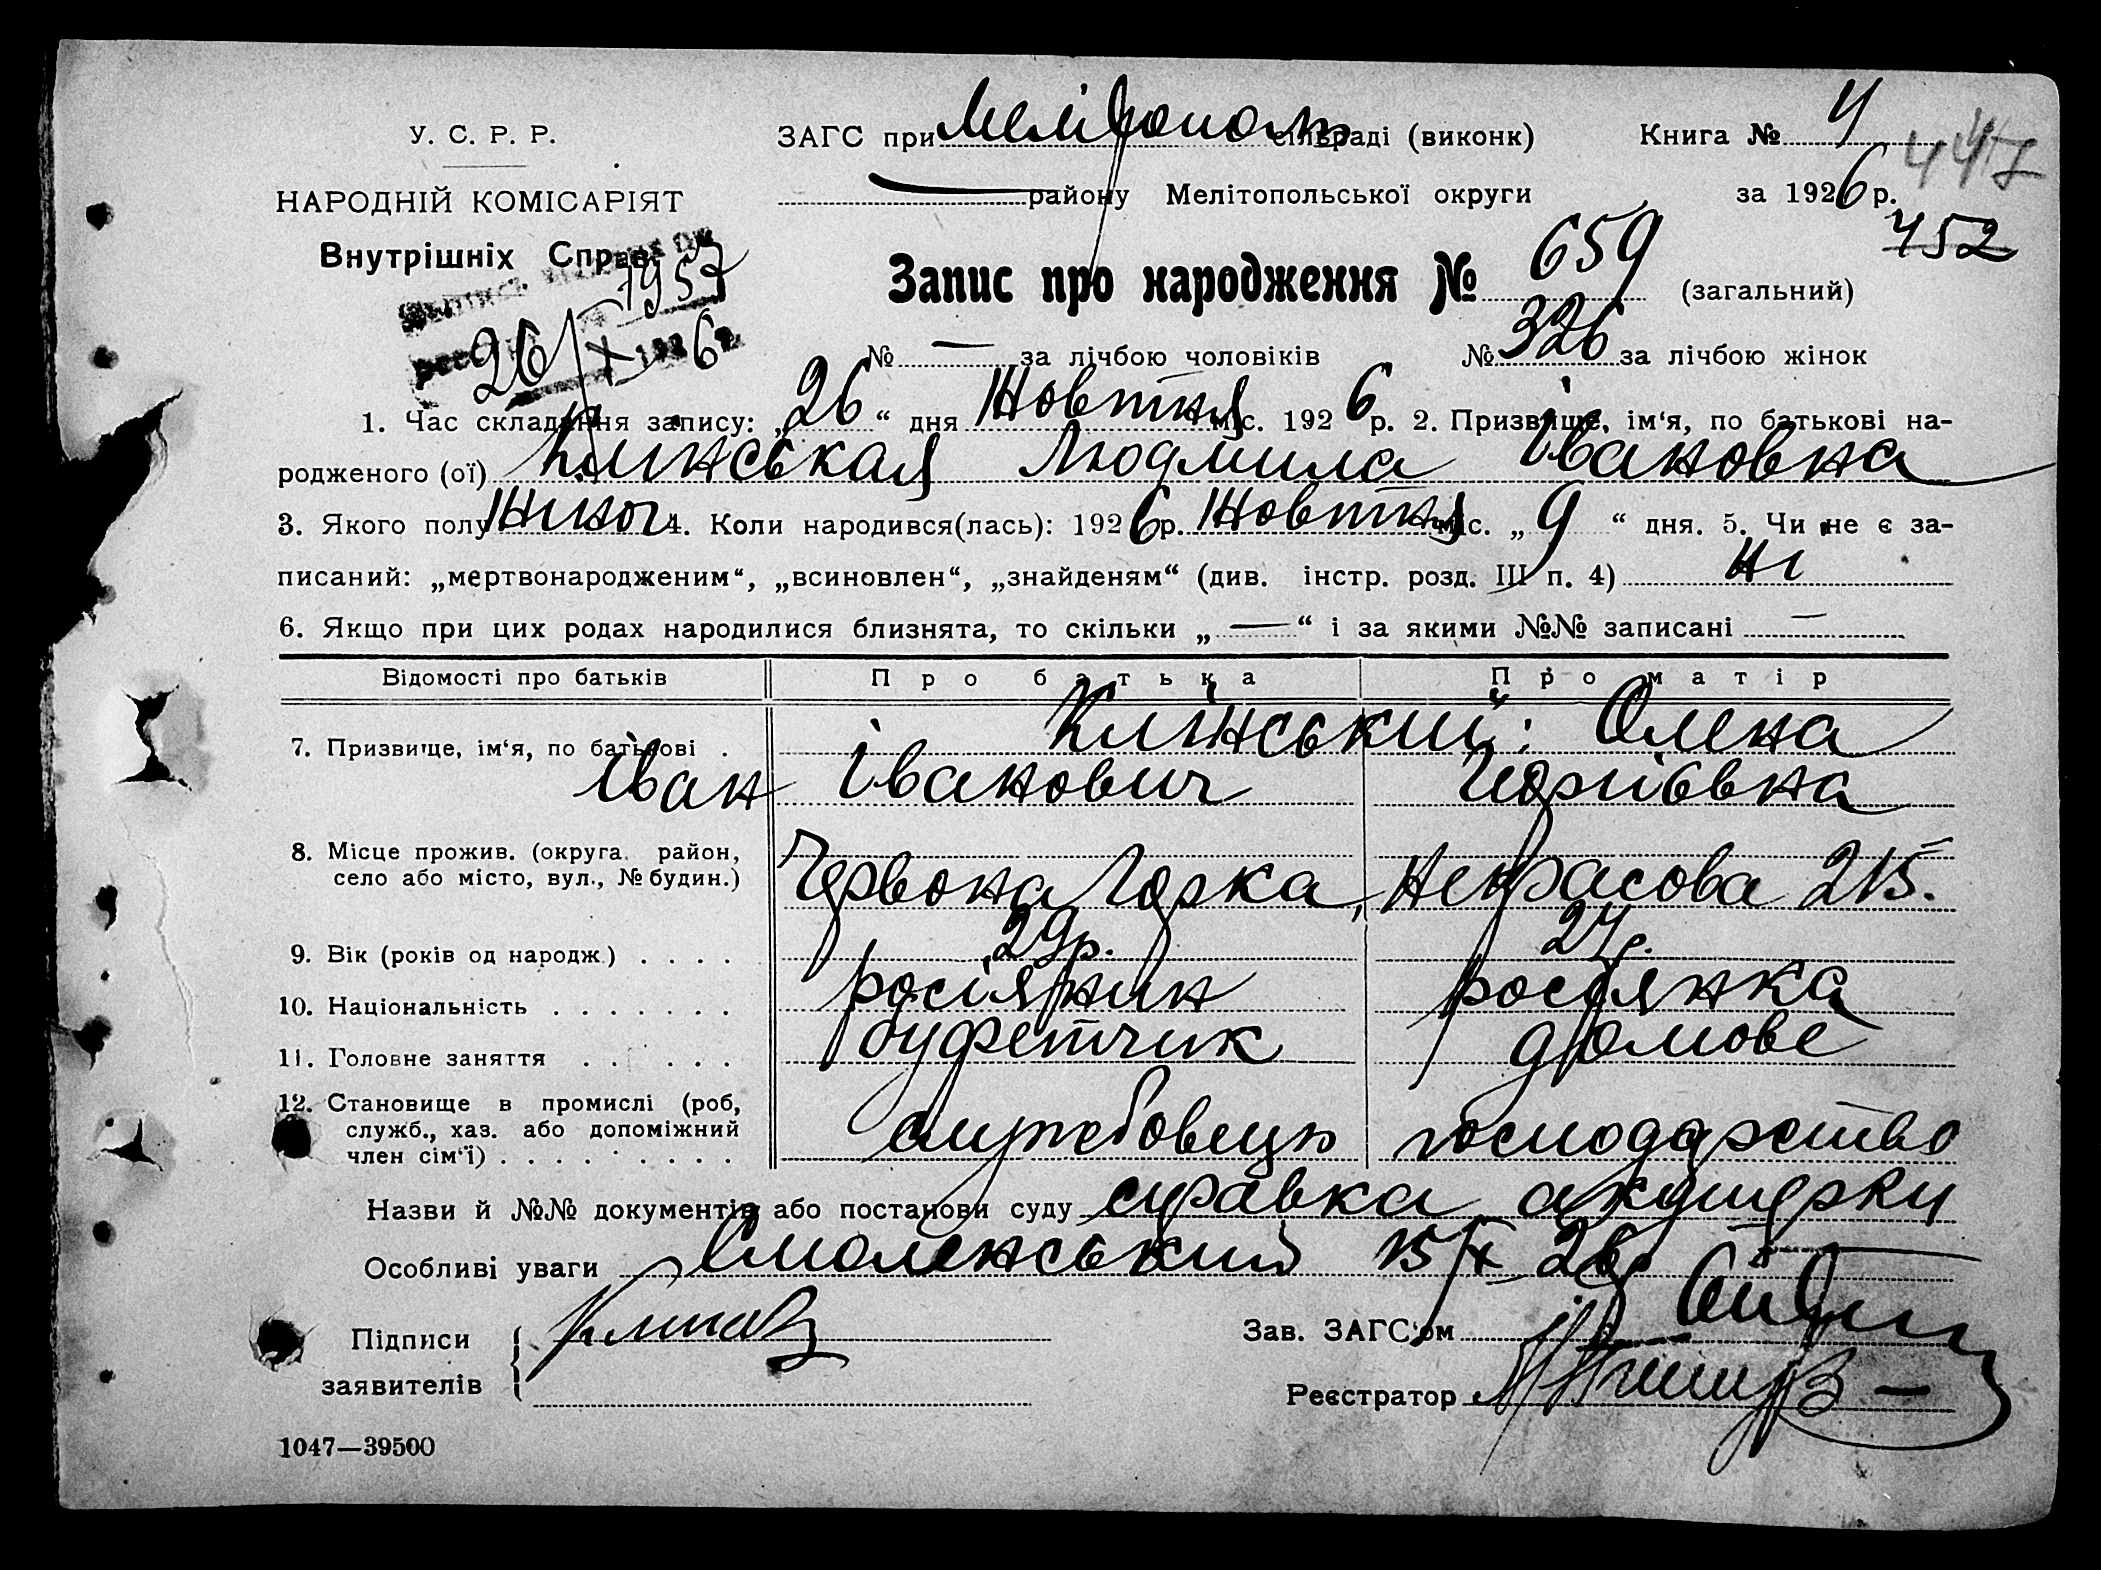 У. С. Р. Р.
НАРОДНІЙ КОМІСАРІЯТ
Внутрішніх Справ
1957
26/X 1926
ЗАГС при Мелітополь сільраді (виконк)
району Мелітопольської округи
Книга № 4
447
за 1926 р.
452
Запис про народження № 659 (загальний)
№ — за лічбою чоловіків № 326 за лічбою жінок
1. Час складання запису: „26“ дня Жовтня міс. 1926 р. 2. Призвище, ім‘я, по батькові на-
родженого (ої) Клінськая Людмила Івановна
3. Якого полу Жіноч 4. Коли народився(лась): 1926 р. Жовтня міс. „9“ дня. 5. Чи не є за-
писаний: „мертвонародженим“, „всиновлен“, „знайденям“ (див. інстр. розд. III п. 4) Ні
6. Якщо при цих родах народилися близнята, то скільки „—“ і за якими №№ записані —
Відомості про батьків Про батька Про матір
7. Призвище, ім‘я, по батькові . Клінський: Олена
Іван Іванович
8. Місце прожив. (округа, район,
село або місто, вул., № будин.) Червона Горка, Некрасова 215.
9. Вік (років од народж) . . . . 29 р. 24 р.
10. Національність . . . . . . . росіянин росіянка
11. Головне заняття . . . . . . буфетчик домове
12. Становище в промислі (роб,
служб., хаз. або допоміжний
член сім‘ї) . . . . . . . . . службовець господарство
Назви й №№ документів або постанови суду справка акушерки
Особливі уваги Смоленський 15/X 26
Підписи
заявителів
Зав. ЗАГС‘ом
Реєстратор
1047—39500